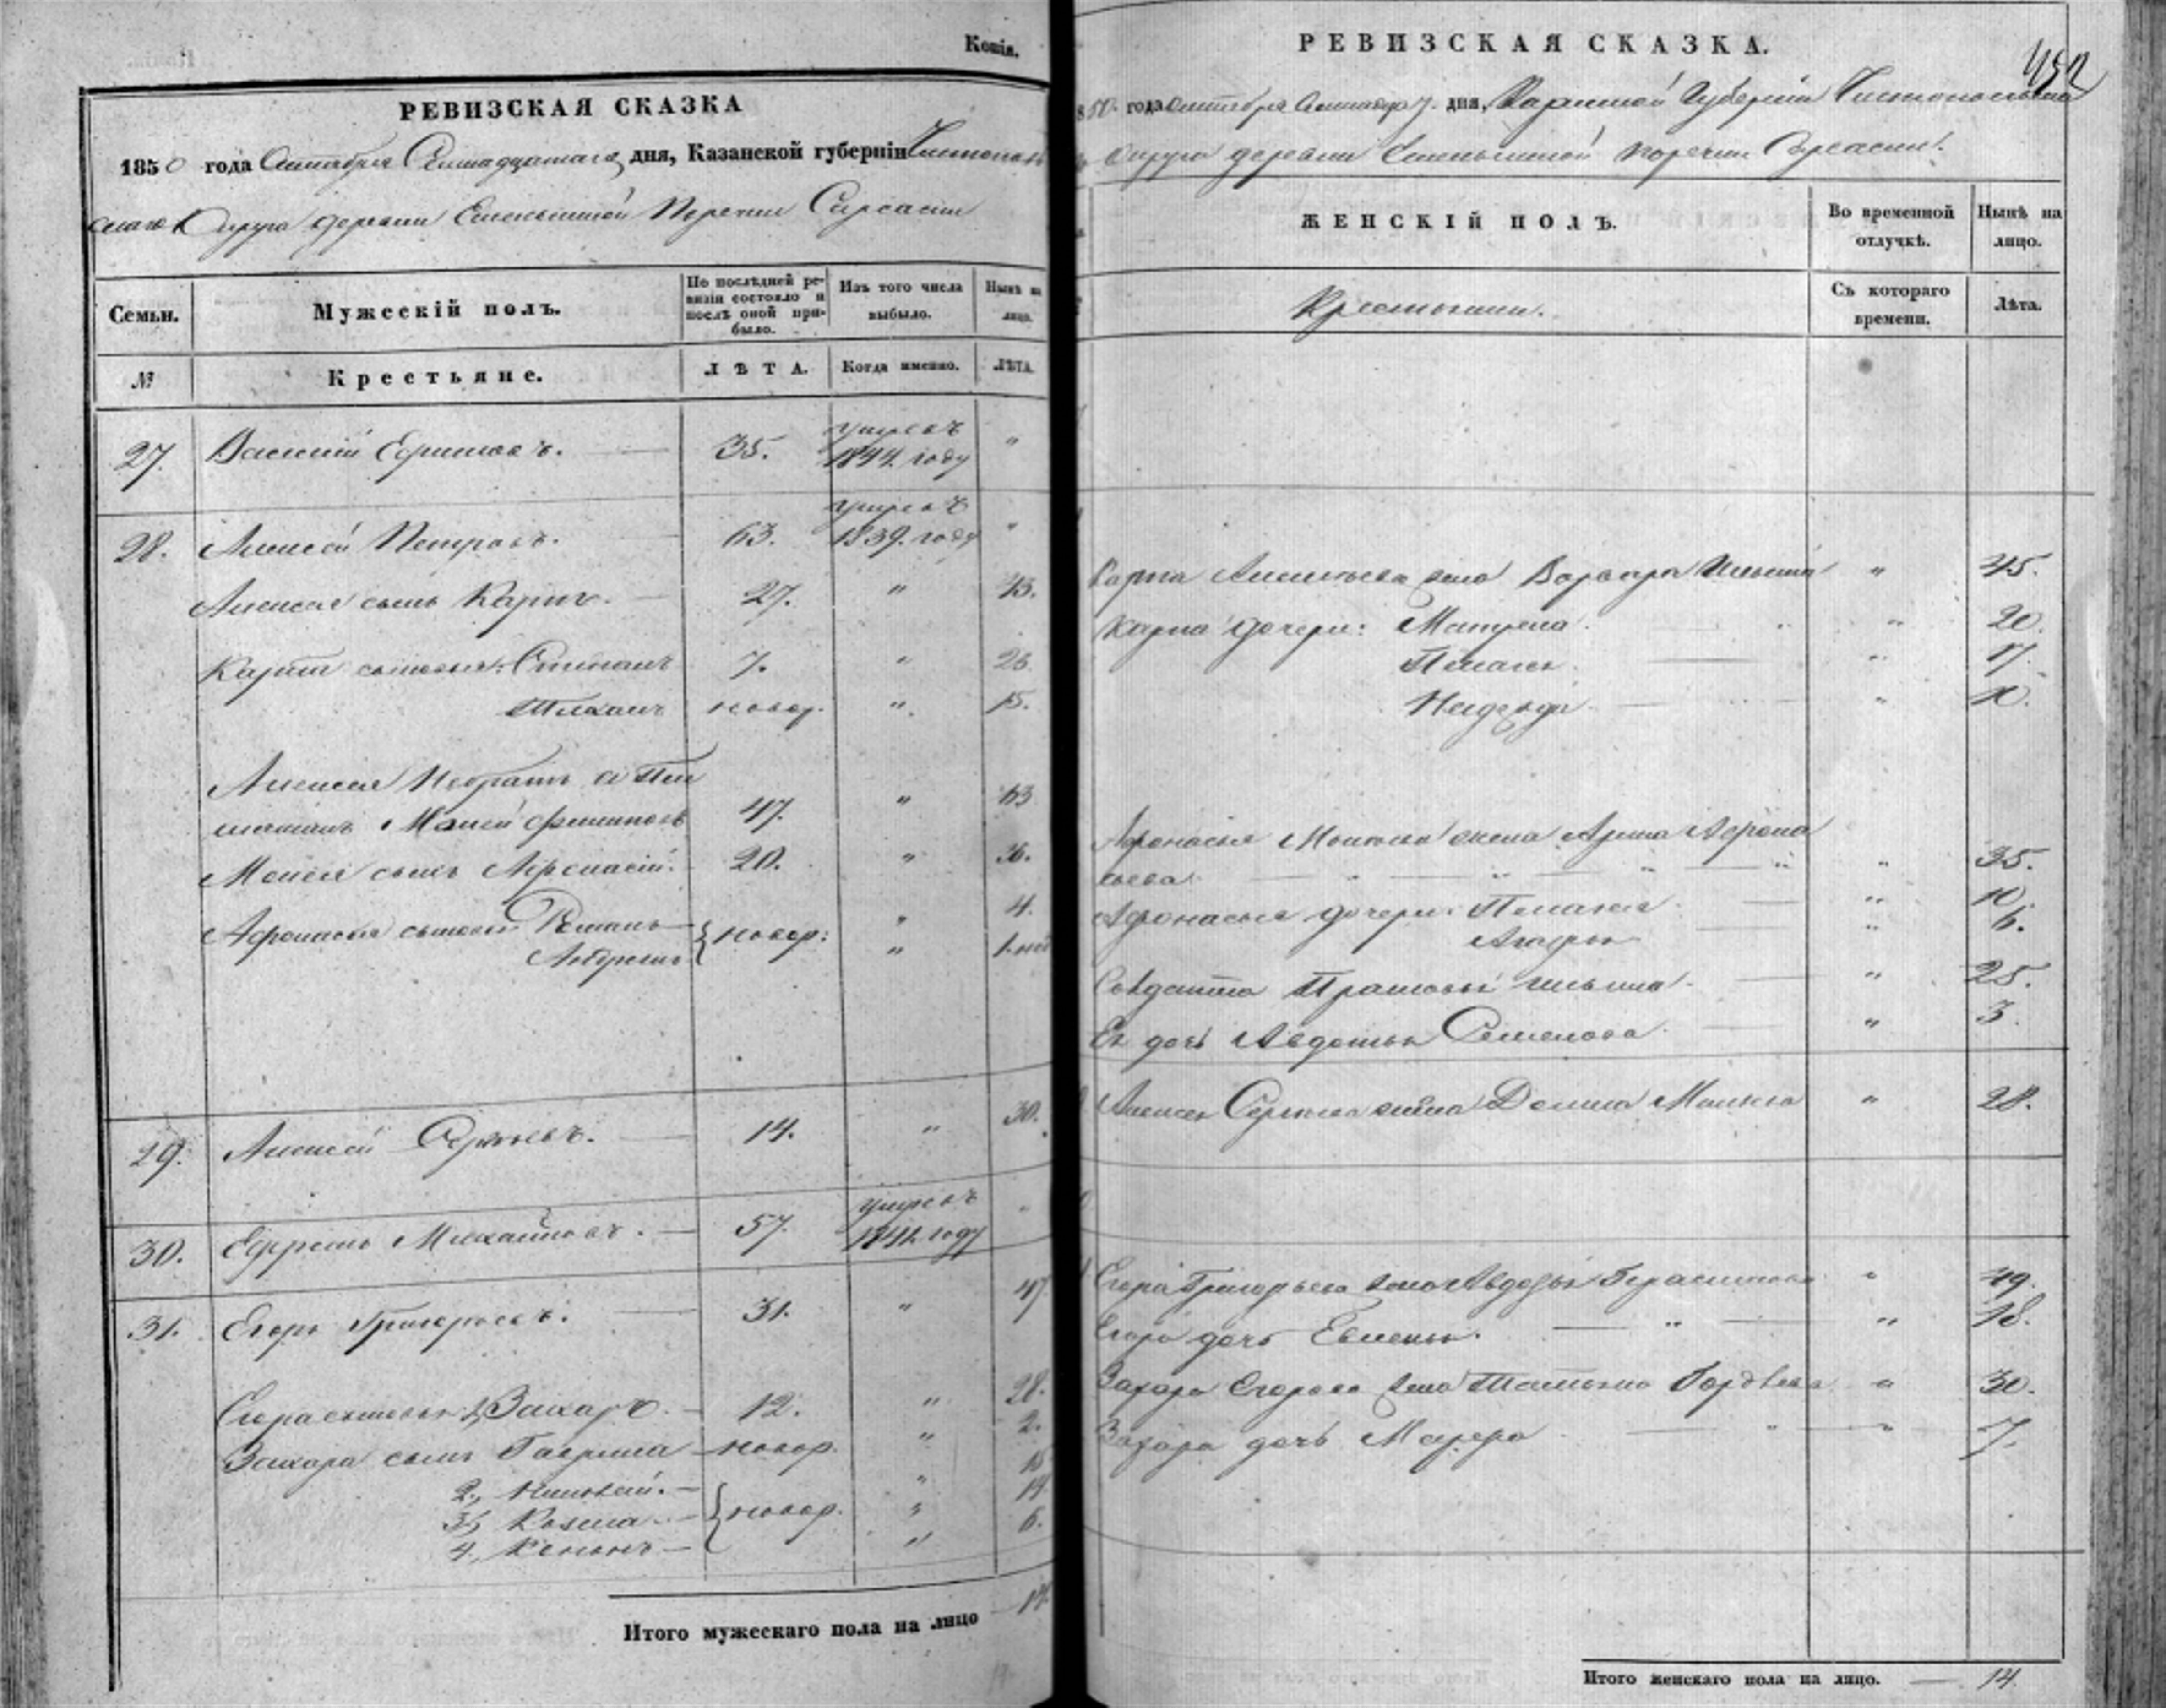 Копія.
РЕВИЗСКАЯ СКАЗКА
1850 года Октября Семнадцатаго дня, Казанской губерніи Чистополь
скаго Округа деревни Поречни Сарсасы
Семьи.
Мужескій полъ.
По послѣдней ре-
визіи состояло и
послѣ оной при-
было.
Изъ того числа
выбыло.
Нынѣ на
лицо.
№
Крестьяне.
ЛѢТА.
Когда именно.
ЛѢТА.
27. Василій Ефимовъ. 35. умеръ 1844 году "
28. Алексѣй Петровъ. 63. умеръ 1839. году "
Алексея сынъ Карпъ. 27. " 43.
Карпа сыновья: Степанъ 7. " 23.
Тихонъ новор. " 15.
Алексея
Моисей 47. " 63
Моисея сынъ Афонасій. 20. " 36.
Афонасья сыновья Романъ новор: " 4.
Андреянъ "
29. Алексѣй Сергѣевъ. 14. " 30.
30. Ефремъ Михайловъ. 57. умеръ 1841. году "
31. Егоръ Григорьевъ. 31. " 47
Егора сыновья 1, Захаръ 12. " 28.
Захара сынъ Гаврила новор. " 2.
2, " 15
3, Козма новор. " 14
4, " 6.
Итого мужескаго пола на лицо 14
РЕВИЗСКАЯ СКАЗКА.
452
850 года Октября дня, Казанской Губерніи Чистопольска
Округа деревни Поречни Сарсасы.
ЖЕНСКІЙ ПОЛЪ.
Во временной
отлучкѣ.
Нынѣ на
лицо.
Крестьянки.
Съ котораго
времени.
Лѣта.
Карпа Алексѣева жена Варвара Ильина " 45.
Карпа дочери: Матрена " 20.
Пелагея " 17.
Надежда " 10.
Афонасья Моисеева жена Арина Афона
сьева " 35.
Афонасья дочери: Пелагея " 10.
" 6.
Солдатка Прасковья Ильина " 25.
Ея дочь Авдотья Семенова " 3.
Алексея Сергеева жена Домна " 28.
Егора Григорьева жена Авдотья Герасимова " 49.
Егора дочь Евгенья. " 18.
Захара Егорова жена Татьяна Гордѣева " 30.
Захара дочь " 7.
Итого женскаго пола на лицо. 14